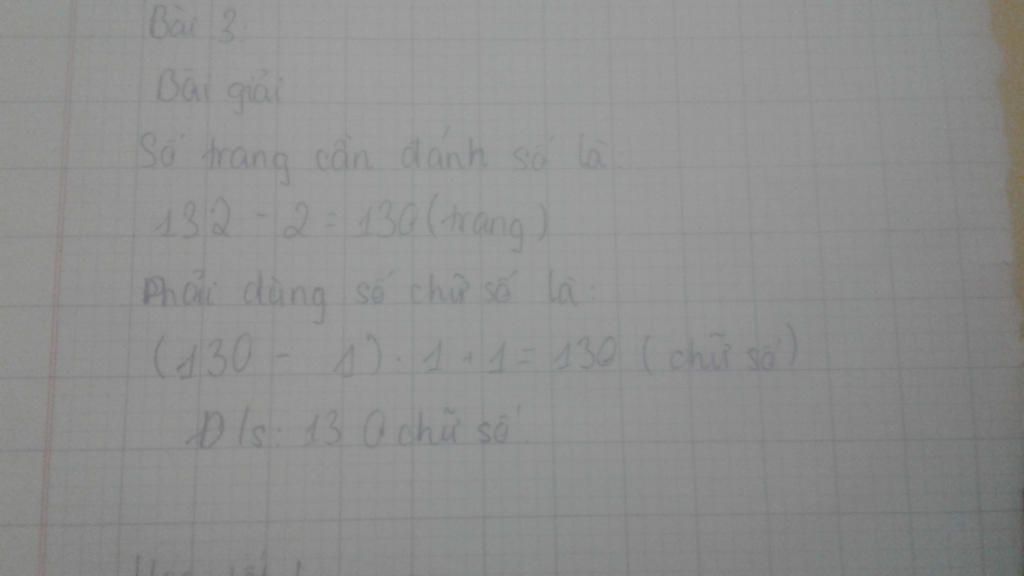 Bài 3:
Bài giải
Số trang cần đánh số là:
132 - 2 = 130 (trang)
Phải dùng số chữ số là:
(130 - 1) : 1 + 1 = 130 (chữ số)
Đ/s: 130 chữ số